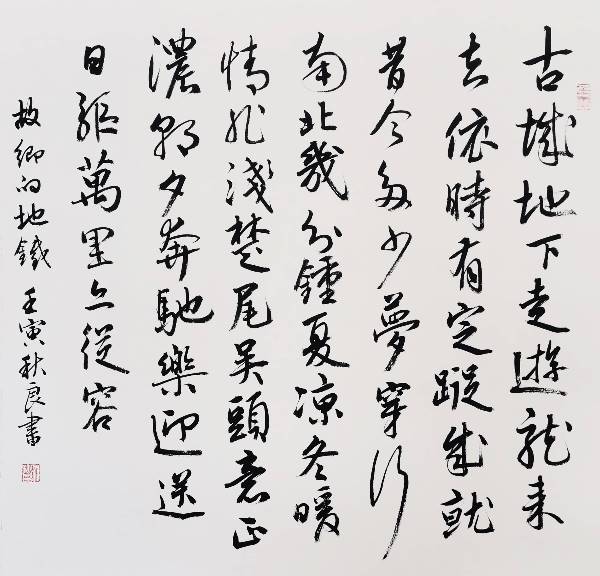 古城地下走游龍来
去依時有定蹤成就
昔今多少夢穿行
南北幾分鍾夏凉冬暖
情非淺楚尾吴頭意正
濃朝夕奔馳樂迎送
日驱萬里亦從容
故鄉的地鐵 壬寅秋良書